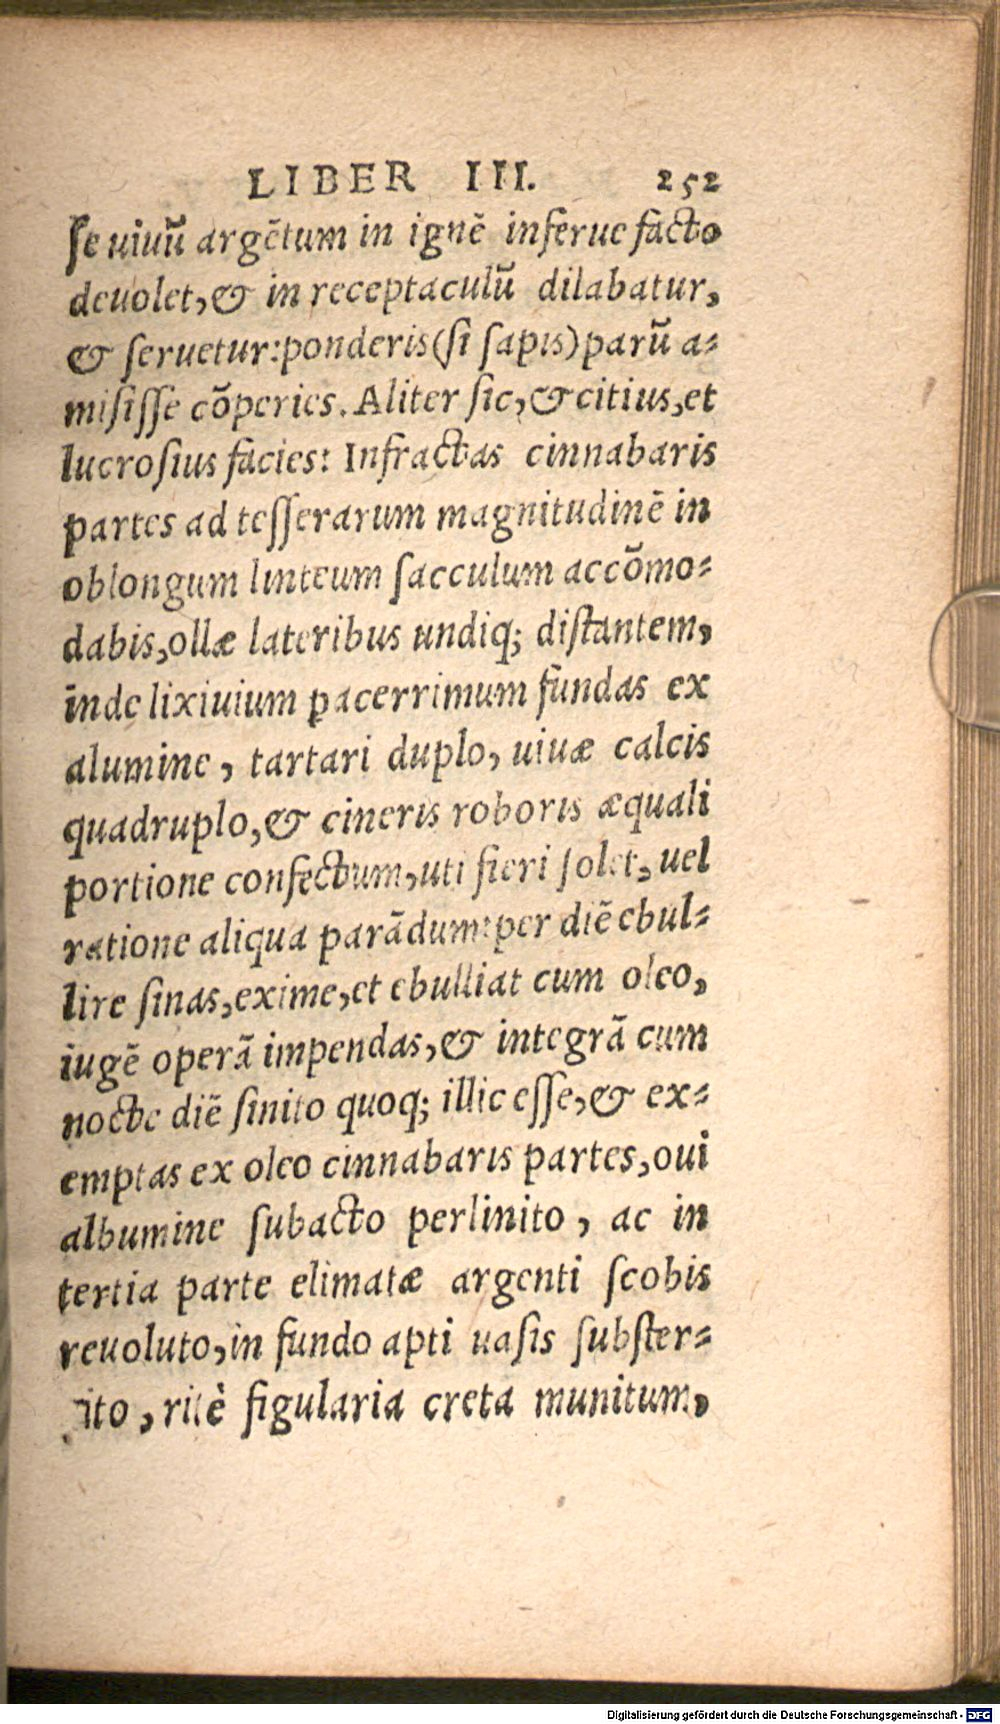 LIBER III. 252
ſe uiuū argētum in ignē inferue facto
deuolet, & in receptaculū dilabatur,
& ſeruetur: ponderis (ſi ſapis) parū a-
miſiſſe cōperies. Aliter ſic, & citius, et
lucroſius facies: Infractas cinnabaris
partes ad teſſerarum magnitudinē in
oblongum linteum ſacculum accōmo-
dabis, ollæ lateribus undiq; diſtantem,
inde lixiuium pacerrimum fundas ex
alumine, tartari duplo, uiuæ calcis
quadruplo, & cineris roboris æquali
portione confectum, uti fieri ſolet, uel
ratione aliqua parādum: per diē ebul-
lire ſinas, exime, et ebulliat cum oleo,
iugē operā impendas, & integrā cum
nocte diē ſinito quoq; illic eſſe, & ex-
emptas ex oleo cinnabaris partes, oui
albumine ſubacto perlinito, ac in
tertia parte elimatæ argenti ſcobis
reuoluto, in fundo apti uaſis ſubſter-
ito, ritè figularia creta munitum,
Digitalisierung gefördert durch die Deutsche Forschungsgemeinschaft - DFG